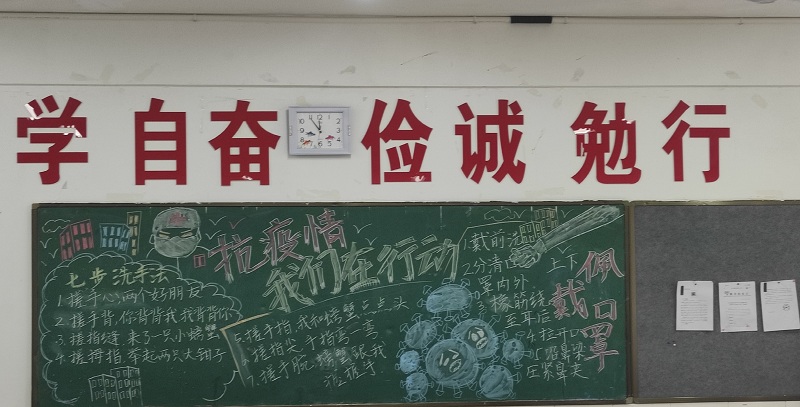 学 自奋 俭诚 勉行
抗疫情
我们在行动
七步洗手法
1.搓手心,两个好朋友
2.搓手背,你背背我,我背背你
3.搓指缝 来了一只小螃蟹
4.搓拇指 举起两只大钳子
5.搓手指,我和螃蟹点点头
6.搓指尖 手指弯一弯
7.搓手腕 螃蟹跟我
握握手
佩戴口罩
戴前洗
2分清口 上下
罩内外
3.将筋绕
至耳后
4.拉开口
5.沿鼻梁
压紧鼻夹